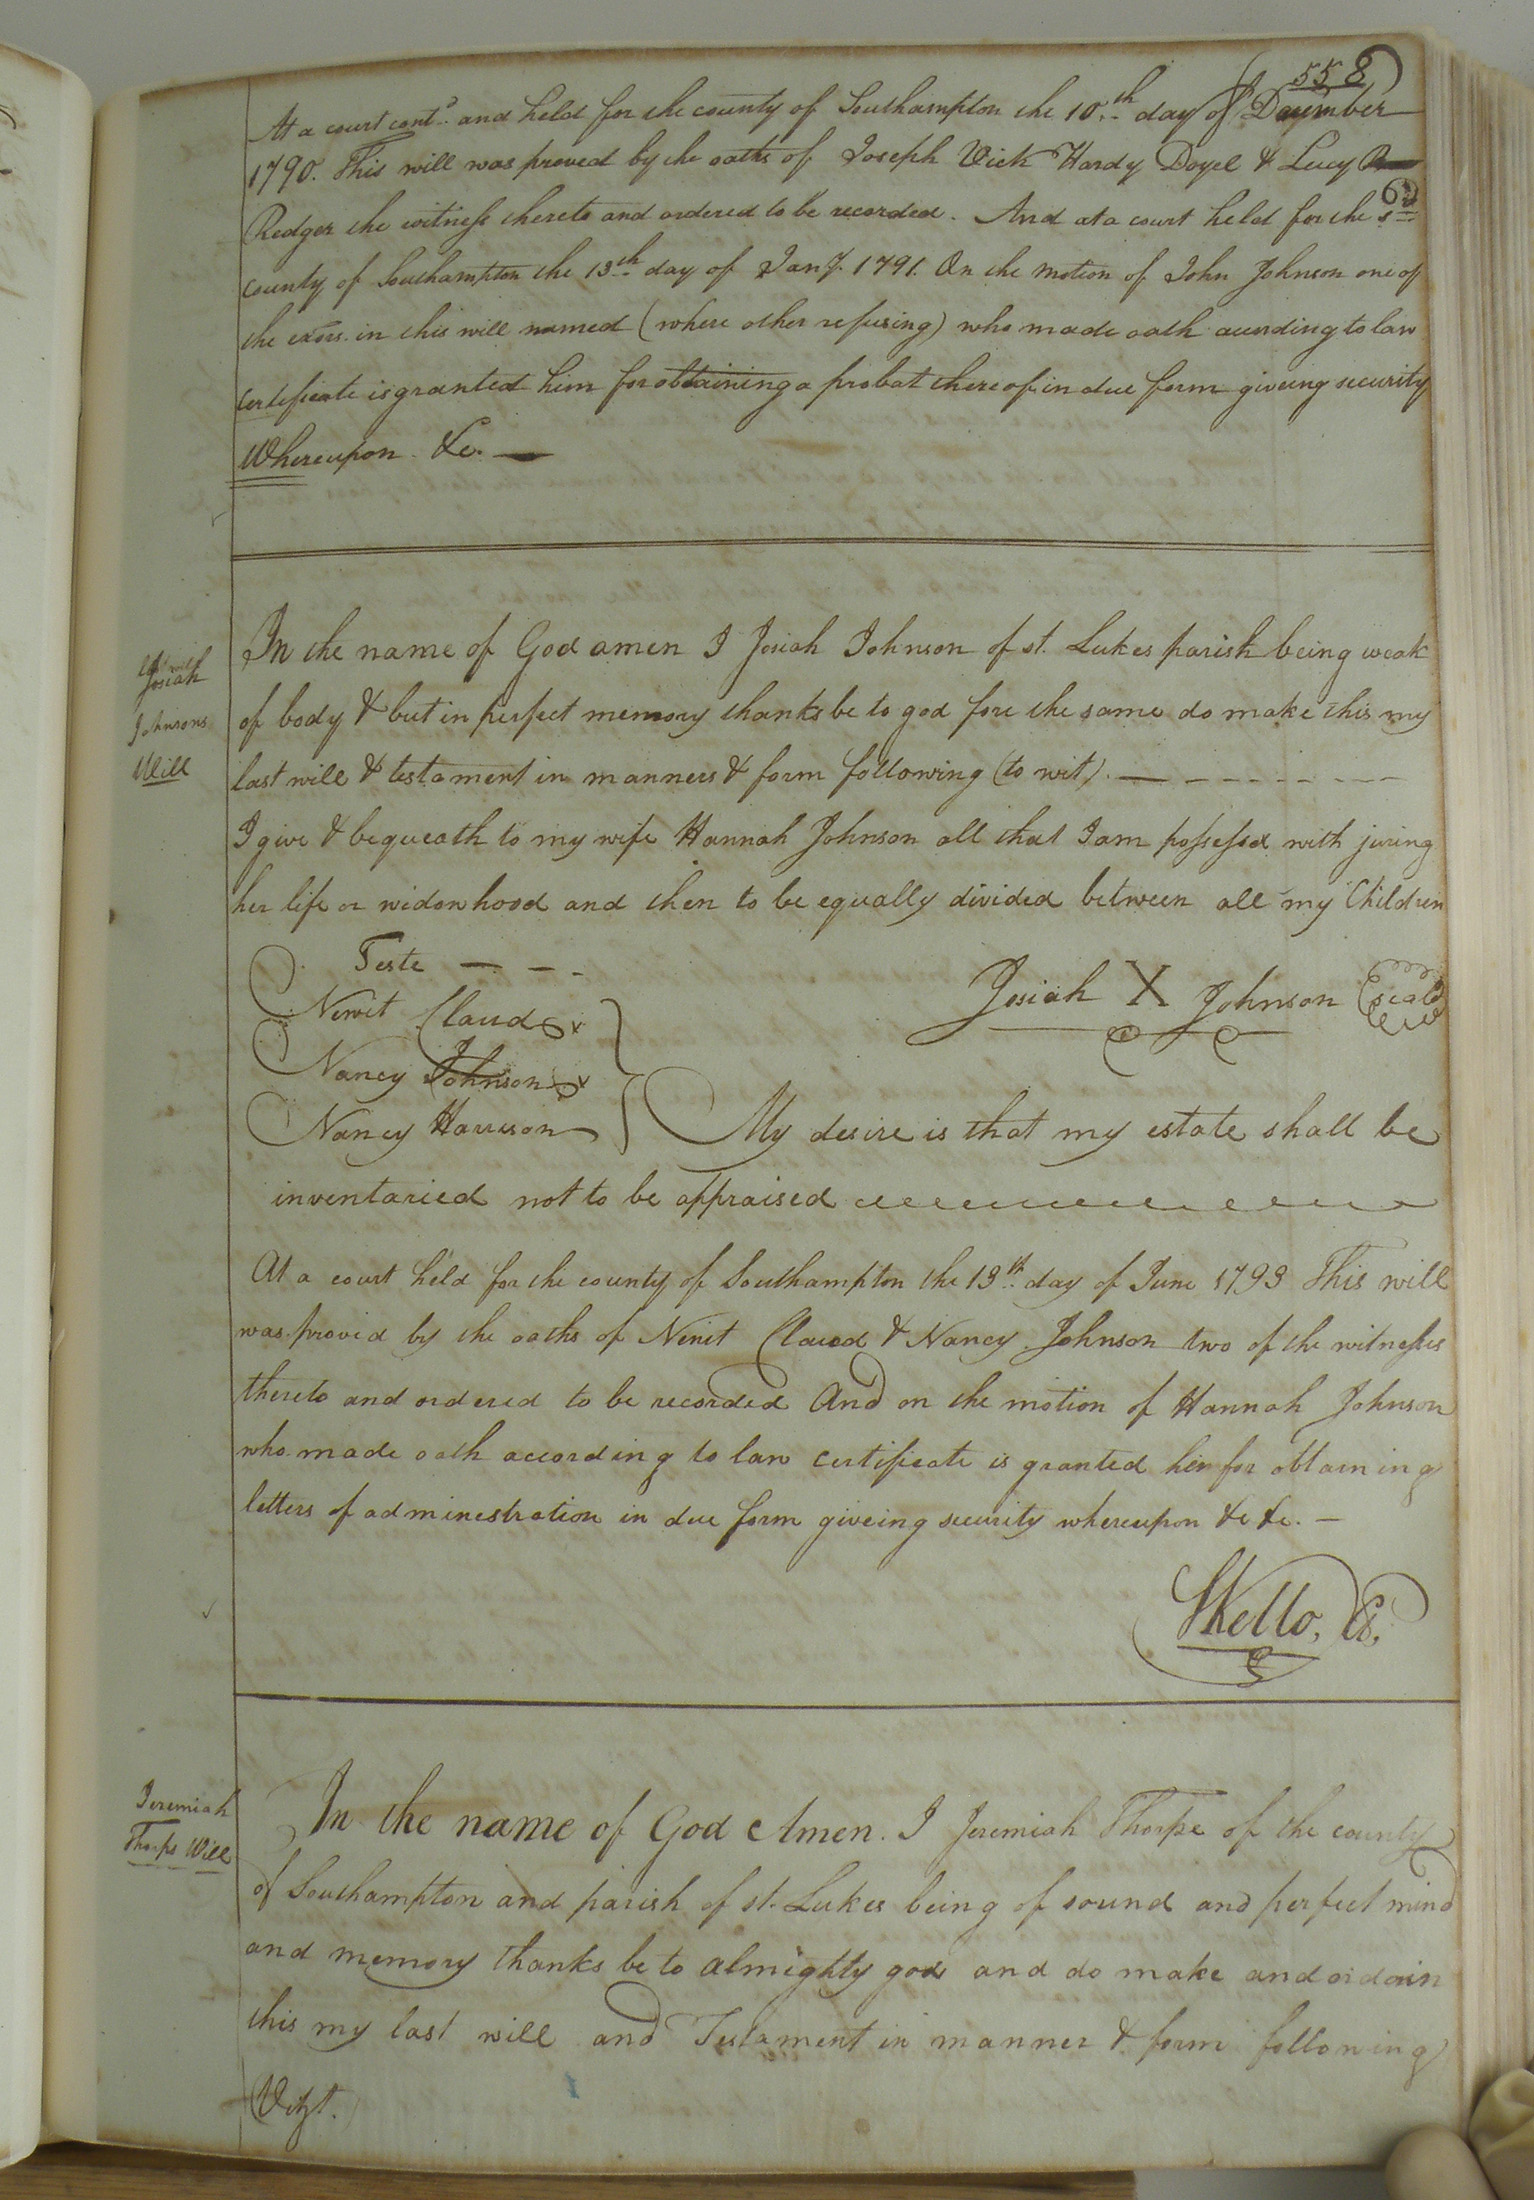 558
At a court contd. and held for the county of Southampton the 10th day of December
1790. This will was proved by the oaths of Joseph Vick Hardy Doyel & Lucy
Rodger the witness thereto and ordered to be recorded. And at a court held for the sd
county of Southampton the 13th day of Jany. 1791. On the motion of John Johnson one of
the exors. in this will named (where other refusing) who made oath according to law
certificate is granted him for obtaining a probat thereof in due form giveing security
Whereupon &c.
Josiah
Johnsons
Will
In the name of God amen I Josiah Johnson of st. Lukes parish being weak
of body & but in perfect memory thanks be to god fore the same do make this my
last will & testament in manners & form following (to wit)
I give & bequeath to my wife Hannah Johnson all that I am possessed with juring
her life or widowhood and then to be equally divided between all my Children
Teste
Josiah X Johnson (seal)
Newit Claud
Nancy Johnson
Nancy Harrison
My desire is that my estate shall be
inventaried not to be appraised
At a court held for the county of Southampton the 13th day of June 1793 This will
was provid by the oaths of Newit Claud & Nancy Johnson two of the witnesses
thereto and ordered to be recorded And on the motion of Hannah Johnson
who made oath according to law certificate is granted her for obtaining
letters of administration in due form giveing security whereupon &c &c.
SKello, Cs.
Jeremiah
Thorps Will
In the name of God Amen. I Jeremiah Thorpe of the county
of Southampton and parish of st. Lukes being of sound and perfect mind
and memory thanks be to almighty god and do make and ordain
this my last will and Testament in manner & form following
(Vizt.)